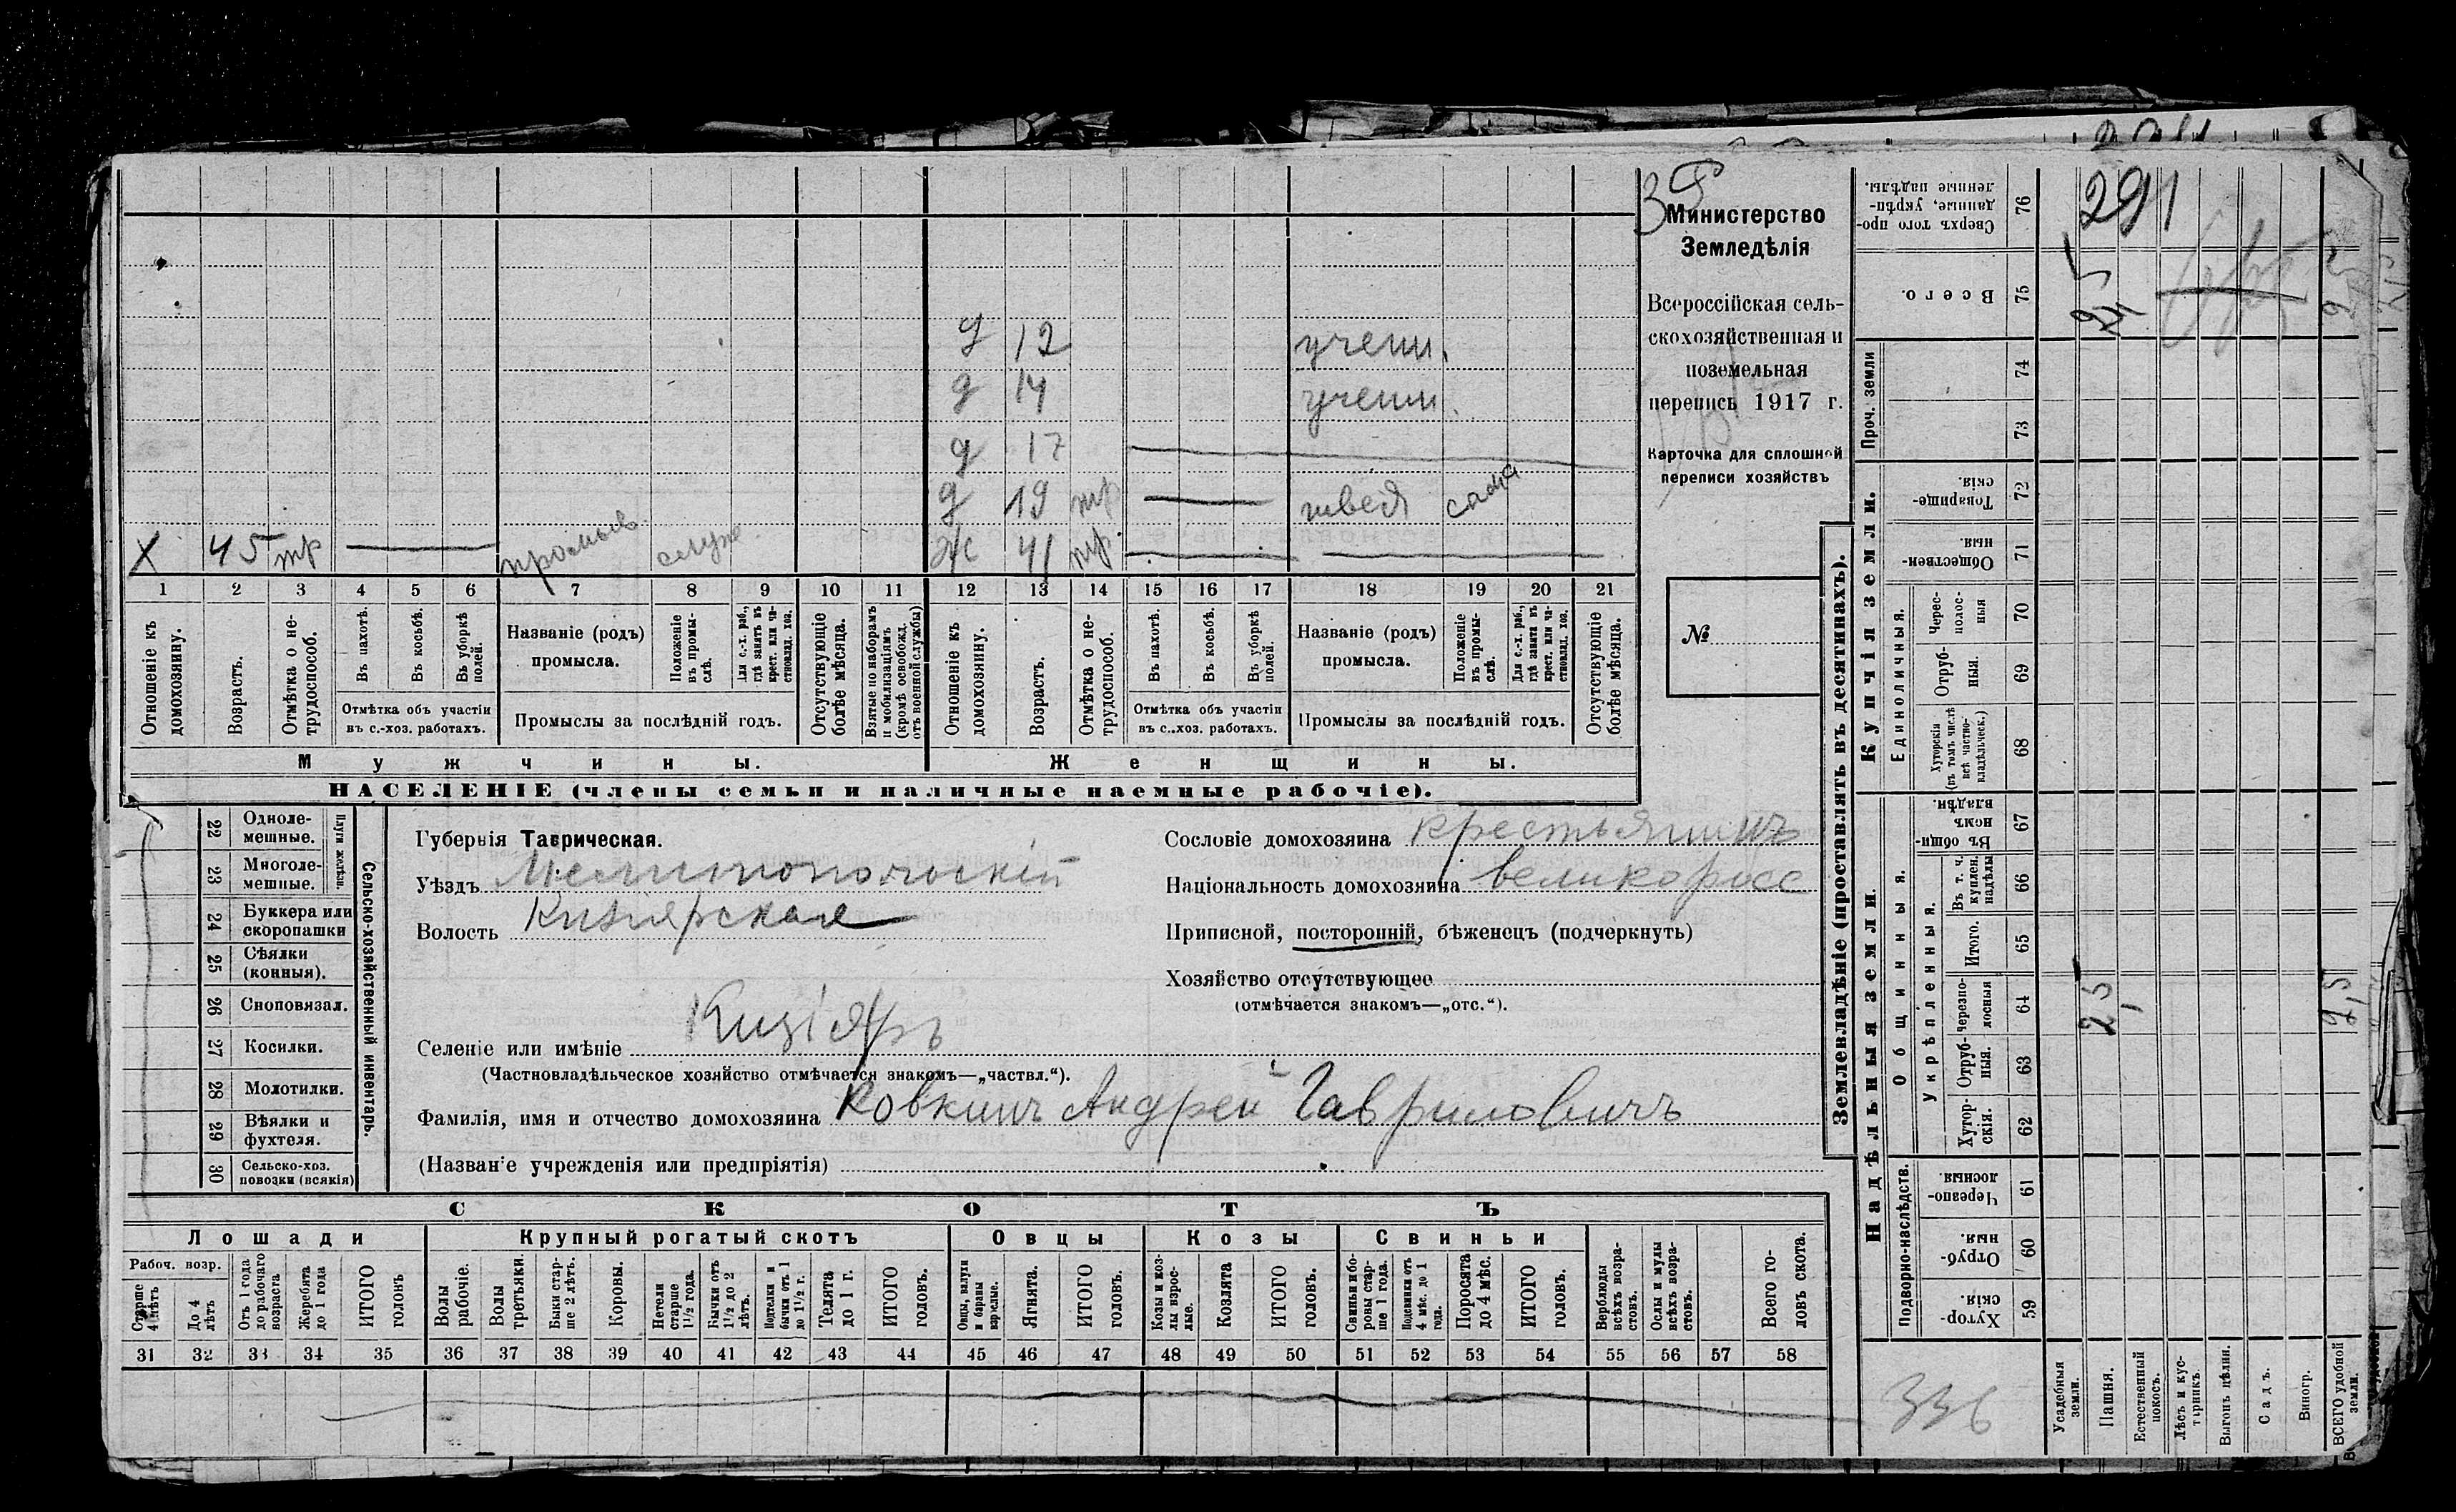 291
Министерство
Земледѣлія
Всероссійская сель-
скохозяйственная и
поземельная
перепись 1917 г.
Карточка для сплошной
переписи хозяйствъ
№
д 12 учени.
д 14 учени.
д 17
д 19 тр швея сама
х 45 тр промыс служ. ж 41 тр.
1 2 3 4 5 6 7 8 9 10 11 12 13 14 15 16 17 18 19 20 21
Отношеніе къ домохозяину.
Возрастъ.
Отмѣтка о не-трудоспособ.
Въ пахотѣ.
Въ косьбѣ.
Въ уборкѣ полей.
Отмѣтка объ участіи
въ с.-хоз. работахъ.
Названіе (родъ)
промысла.
Положеніе въ промы-слѣ.
Для с.-х. раб., гдѣ занятъ въ крест. или ча-стновлад. хоз.
Промыслы за послѣдній годъ.
Отсутствующіе болѣе мѣсяца.
Взятые по наборамъ и мобилизаціямъ (кромѣ освобожд. отъ военной службы)
Отношеніе къ домохозяину.
Возрастъ.
Отмѣтка о не-трудоспособ.
Въ пахотѣ.
Въ косьбѣ.
Въ уборкѣ полей.
Отмѣтка объ участіи
въ с.-хоз. работахъ.
Названіе (родъ)
промысла.
Положеніе въ промы-слѣ.
Для с.-х. раб., гдѣ заняты въ крест. или ча-стновлад. хоз.
Промыслы за послѣдній годъ.
Отсутствующіе болѣе мѣсяца.
Мужчины. Женщины.
НАСЕЛЕНІЕ (члены семьи и наличные наемные рабочіе).
Сельско-хозяйственный инвентарь.
Плуги желѣзн.
22 Одноле-мешные.
23 Многоле-мешные.
24 Буккера или скоропашки
25 Сѣялки (конныя).
26 Сноповязал.
27 Косилки.
28 Молотилки.
29 Вѣялки и фухтеля.
30 Сельско-хоз. повозки (всякія)
Губернія Таврическая.
Уѣздъ Мелитопольскій
Волость Кизіярская
Селеніе или имѣніе Кизіяръ
(Частновладѣльческое хозяйство отмѣчается знакомъ—„частвл.“).
Фамилія, имя и отчество домохозяина Ковкинъ Андрей Гавриловичъ
(Названіе учрежденія или предпріятія)
Сословіе домохозяина крестьянинъ
Національность домохозяина великоросс
Приписной, посторонній, бѣженецъ (подчеркнуть)
Хозяйство отсутствующее
(отмѣчается знакомъ—„отс.“).
СКОТЪ
Лошади Крупный рогатый скотъ Овцы Козы Свиньи
Рабоч. возр.
Старше 4 лѣтъ
До 4 лѣтъ
Отъ 1 года до рабочаго возраста
Жеребята до 1 года
ИТОГО головъ
Волы рабочіе.
Волы третьяки.
Быки стар-ше 2 лѣтъ.
Коровы.
Нетели старше 1½ года.
Бычки отъ 1½ до 2 лѣтъ.
Подтелки и бычки отъ 1 до 1½ г.
Телята до 1 г.
ИТОГО головъ.
Овцы, валухи и бараны взрослые.
Ягнята.
ИТОГО головъ.
Козы и коз-лы взрос-лые.
Козлята
ИТОГО головъ.
Свиньи и бо-ровы стар-ше 1 года.
Подсвинки отъ 4 мѣс. до 1 года.
Поросята до 4 мѣс.
ИТОГО головъ.
Верблюды всѣхъ возра-стовъ.
Ослы и мулы всѣхъ возра-стовъ.
Всего го-ловъ скота.
31 32 33 34 35 36 37 38 39 40 41 42 43 44 45 46 47 48 49 50 51 52 53 54 55 56 57 58
Землевладѣніе (проставлять въ десятинахъ).
Сверхъ того про-данные, укрѣп-ленные надѣлы. 76
Всего. 75 2,5
Проч. земли 74 73
Купчія земли.
Товарище-скія. 72
Обществен-ныя. 71
Единоличныя.
Черес-полос-ныя 70
Отруб-ныя. 69
Хуторскія (въ томъ числѣ всѣ частно-владѣльческ.) 68
Надѣльныя земли.
Общинныя.
Въ общин-номъ владѣн. 67
Укрѣпленныя.
Въ т. ч. куплен. надѣлы 66
Итого. 65
Черезпо-лосныя 64 2,5 2,5
Отруб-ныя. 63
Хутор-скія. 62
Подворно-наслѣдств.
Черезпо-лосныя. 61
Отруб-ныя. 60
Хутор-скія. 59
336
Усадебныя земли.
Пашня.
Естественный покосъ.
Лѣсъ и кус-тарникъ.
Выгонъ цѣлин.
Садъ.
Виногр.
ВСЕГО удобной земли.